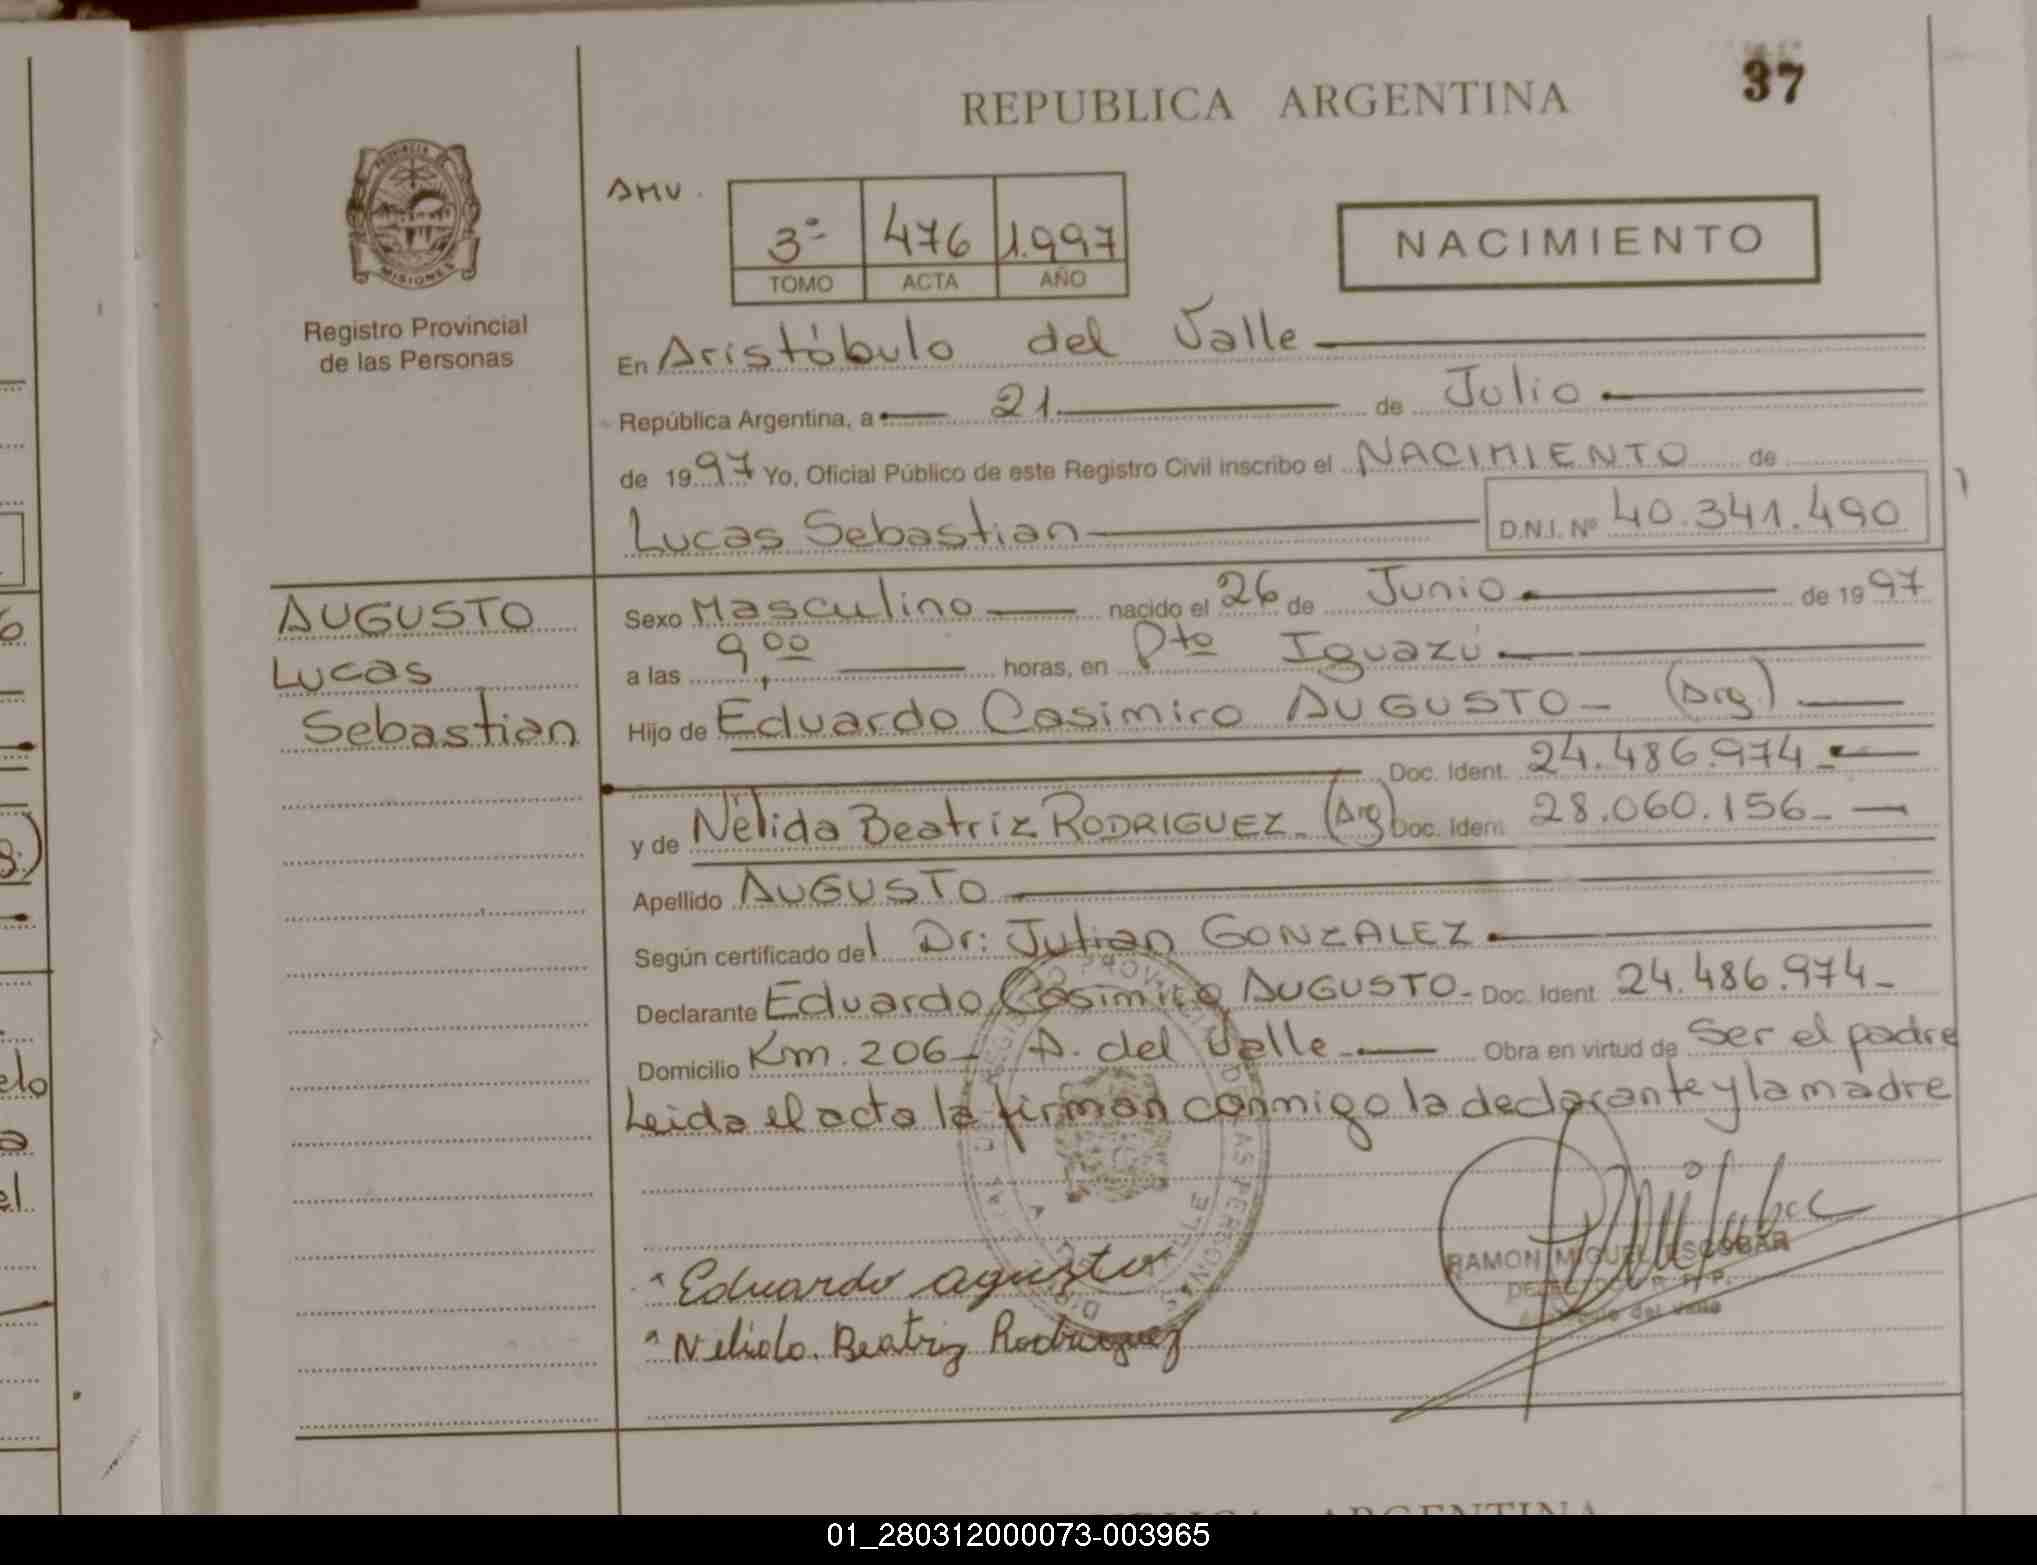 37
REPUBLICA ARGENTINA
PROVINCIA DE
MISIONES
Registro Provincial
de las Personas
AMV.
3º 476 1.997
TOMO ACTA AÑO
NACIMIENTO
En Aristóbulo del Valle
República Argentina, a 21 de Julio
de 1997 Yo, Oficial Público de este Registro Civil inscribo el NACIMIENTO de
Lucas Sebastian D.N.I. Nº 40.341.490
AUGUSTO
Lucas
Sebastian
Sexo Masculino nacido el 26 de Junio de 1997
a las 9,00 horas, en Pto Iguazú
Hijo de Eduardo Casimiro AUGUSTO - (Arg.)
Doc. Ident. 24.486.974
y de Nélida Beatríz RODRIGUEZ - (Arg) Doc. Ident. 28.060.156
Apellido AUGUSTO
Según certificado del Dr: Julian GONZALEZ
Declarante Eduardo Casimiro AUGUSTO - Doc. Ident. 24.486.974
Domicilio Km. 206 - A. del Valle Obra en virtud de Ser el padre
Leida el acta la firman conmigo la declarante y la madre
Eduardo agusto
Nelida. Beatriz Rodriguez
RAMON MIGUEL ESCOBAR
del Valle
REPUBLICA ARGENTINA
01_280312000073-003965